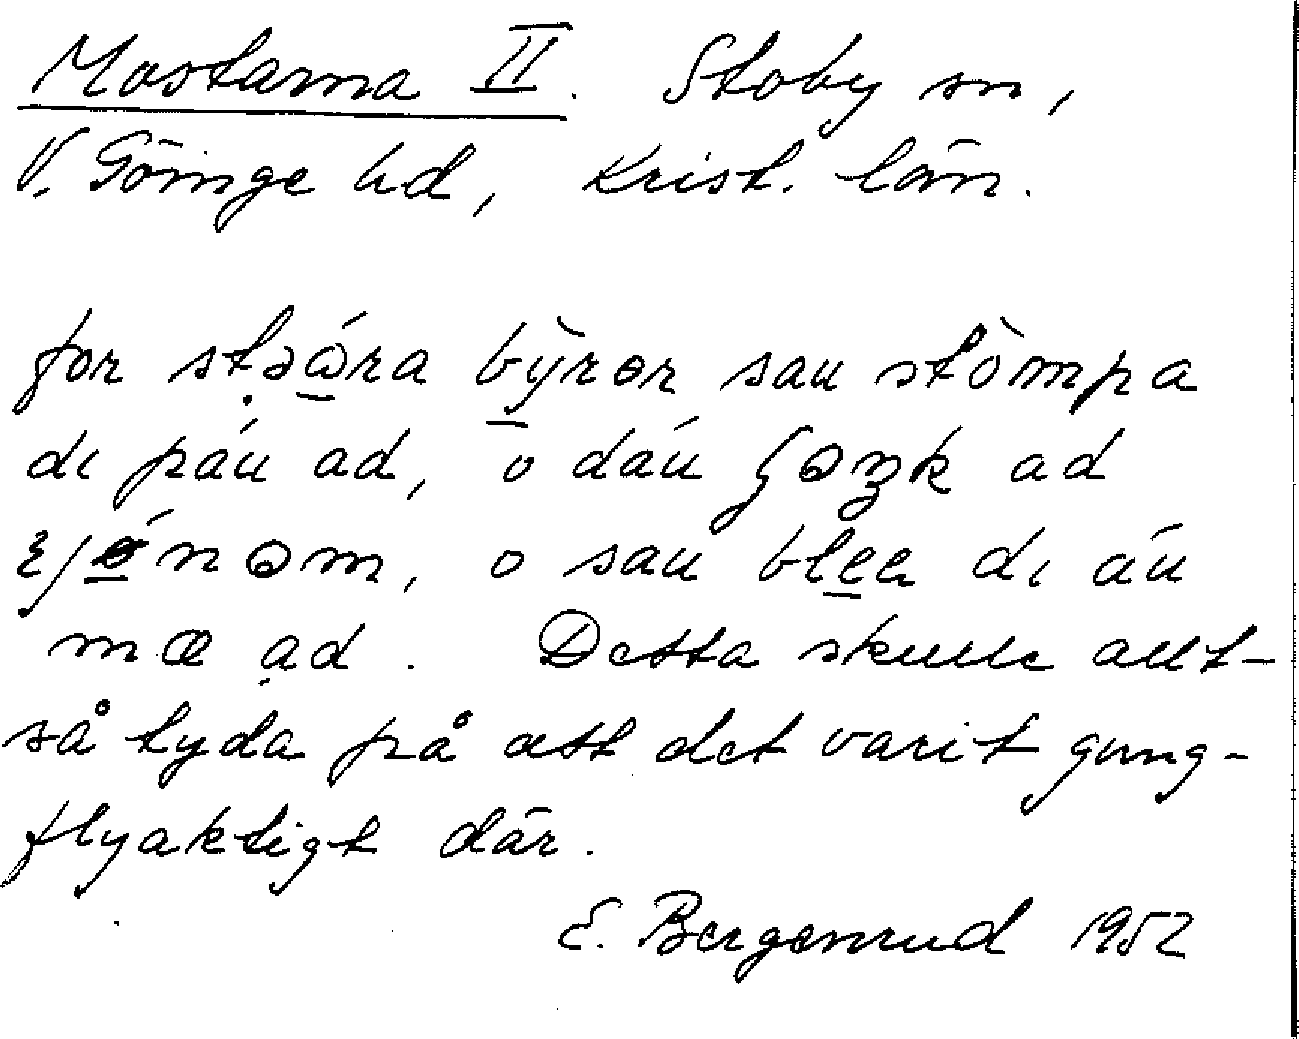 Mostarna II. Stoby sn,
V. Göinge hd, Krist. län.
for stəǻra bỳrər sau stòmpa
dı páu ad, o dáu ad
o sau dı áu
mæ ad. Detta skulle allt-
så tyda på att det varit gung-
flyaktigt där.
E. Bergenrud 1952